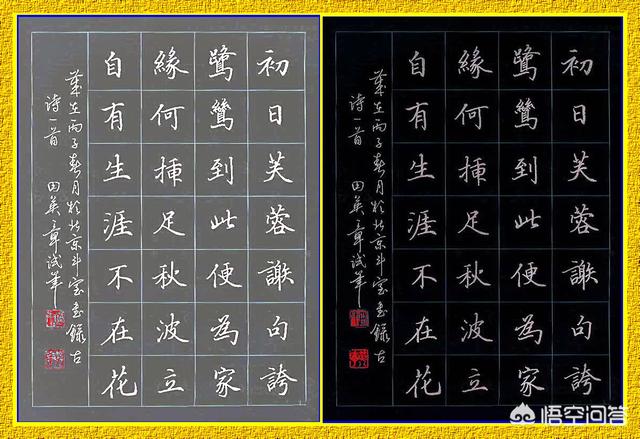 初日芙蓉謝句誇
鷺鷥到此便為家
緣何挿足秋波立
自有生涯不在花
歲在丙子春月於北京斗室書錄古
诗一首 田英章試筆
初日芙蓉謝句誇
鷺鷥到此便為家
緣何挿足秋波立
自有生涯不在花
歲在丙子春月於北京斗室書錄古
诗一首 田英章試筆
悟空问答